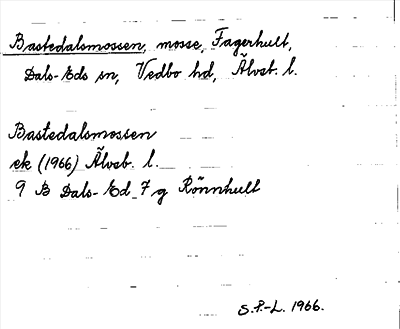 Bastedalsmossen, mosse, Fagerhult,
Dals-Eds sn, Vedbo hd, Älvsb. l.
Bastedalsmossen
ek (1966) Älvsb. l.
9 B Dals-Ed 7 g Rönnhult
S.P.-L. 1966.